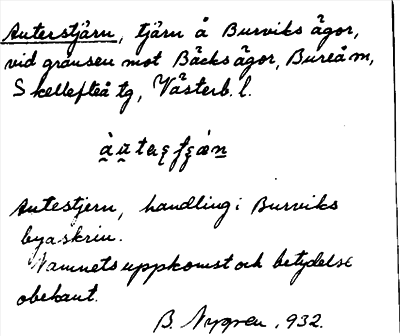 Auterstjärn, tjärn å Burviks ägor,
vid gränsen mot Bäcks ägor, Bureå m,
Skellefteå tg, Västerb. l.
Autestjern, handling i Burviks
byaskrin.
Namnets uppkomst och betydelse
obekant.
B. Nygren, 932.